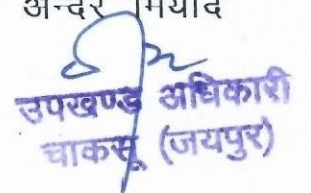 अन्दर मियाद
उपखण्ड अधिकारी
चाकसू (जयपुर)